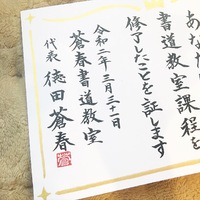 あなた
書道教室課程を
修了したことを証します
令和二年三月三十一日
蒼春書道教室
代表 徳田蒼春